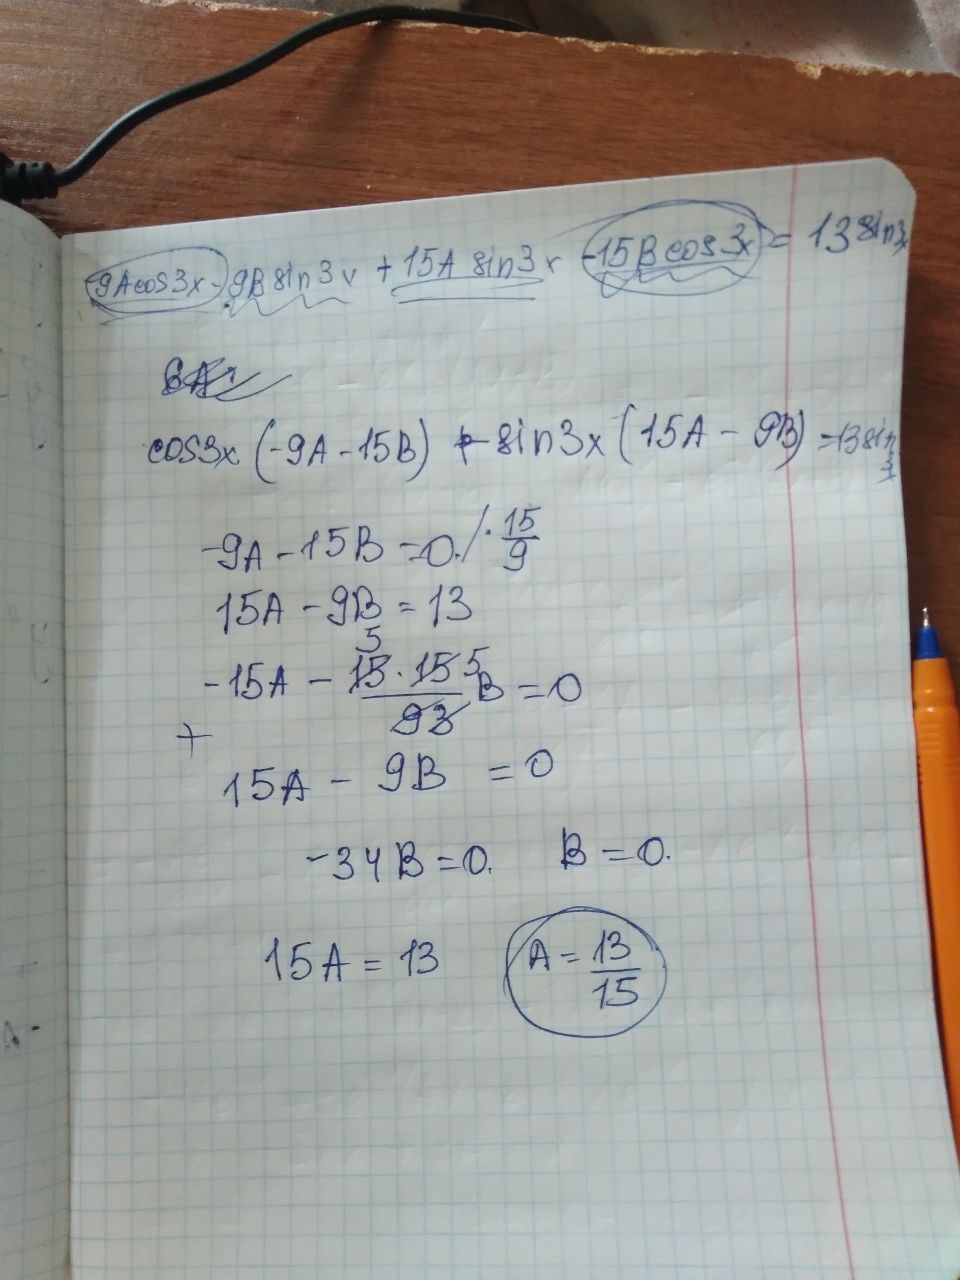 -9Acos3x - 9B sin3x + 15A sin3x - 15B cos3x = 13 sin3x
cos3x (-9A - 15B) + sin3x (15A - 9B) = 13 sin3x
-9A - 15B = 0. / · 15/9
15A - 9B = 13
5 5
-15A - 15·15/93 B = 0
+
15A - 9B = 0
-34B = 0. B = 0.
15A = 13 A = 13/15